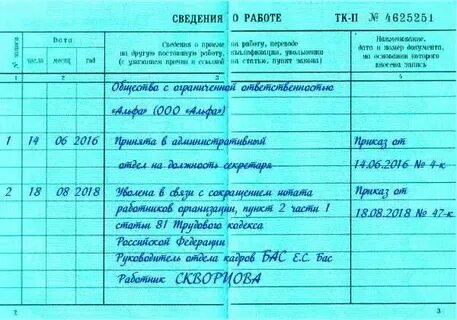 СВЕДЕНИЯ О РАБОТЕ ТК-II № 4625251
№ записи
Дата
Сведения о приеме на работу, переводе
на другую постоянную работу, квалификации, увольнении
(с указанием причин и ссылкой на статью, пункт закона)
Наименование,
дата и номер документа,
на основании которого
внесена запись
число месяц год
1 2 3 4
Общество с ограниченной ответственностью
«Альфа» (ООО «Альфа»)
1 14 06 2016 Принята в административный Приказ от
отдел на должность секретаря 14.06.2016 № 4-к
2 18 08 2018 Уволена в связи с сокращением штата Приказ от
работников организации, пункт 2 части 1 18.08.2018 № 47-к
статьи 81 Трудового кодекса
Российской Федерации
Руководитель отдела кадров БАС Е.С. Бас
Работник СКВОРЦОВА
2 3